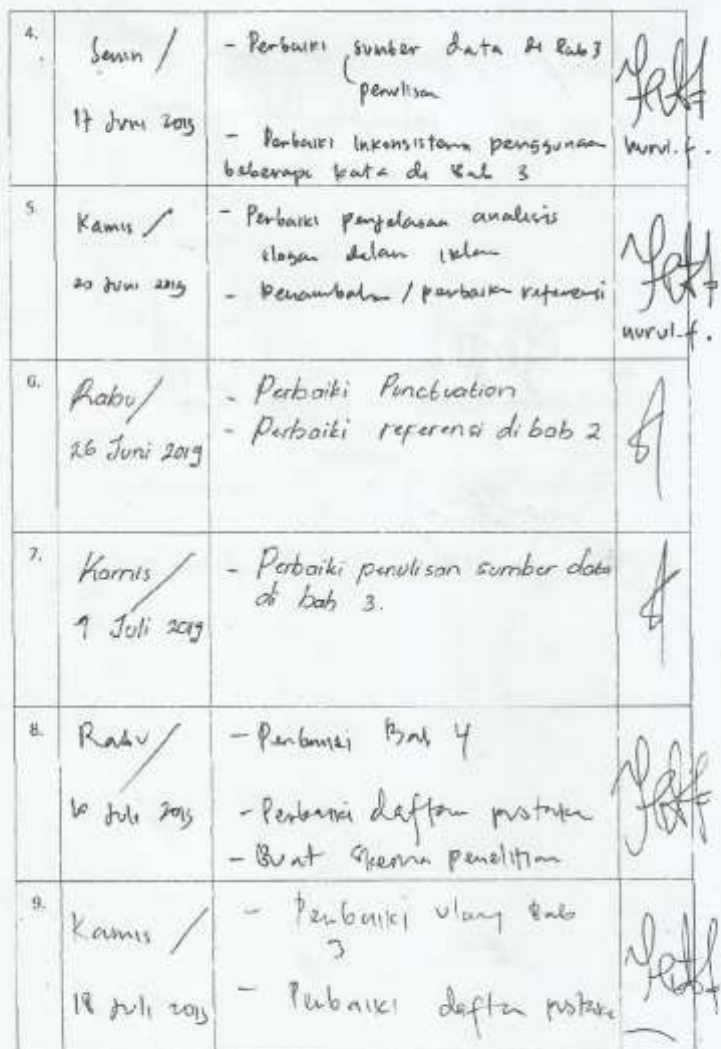 4.
Senin /
17 Juni 2019
- Perbaiki sumber data di Bab 3
penulisan
- Perbaiki inkonsistensi penggunaan
beberapa kata di Bab 3
nurul.f.
5.
Kamis /
20 Juni 2019
- Perbaiki penjelasan analisis
slogan dalam iklan
- Penambahan / perbaikan referensi
nurul.f.
6.
Rabu /
26 Juni 2019
- Perbaiki Punctuation
- Perbaiki referensi di bab 2
7.
Kamis /
Juli 2019
- Perbaiki penulisan sumber data
di bab 3.
8.
Rabu /
10 Juli 2019
- Perbaiki Bab 4
- Perbaiki daftar pustaka
- Buat skema penelitian
9.
Kamis /
18 Juli 2019
- Perbaiki ulang Bab
3
- Perbaiki daftar pustaka